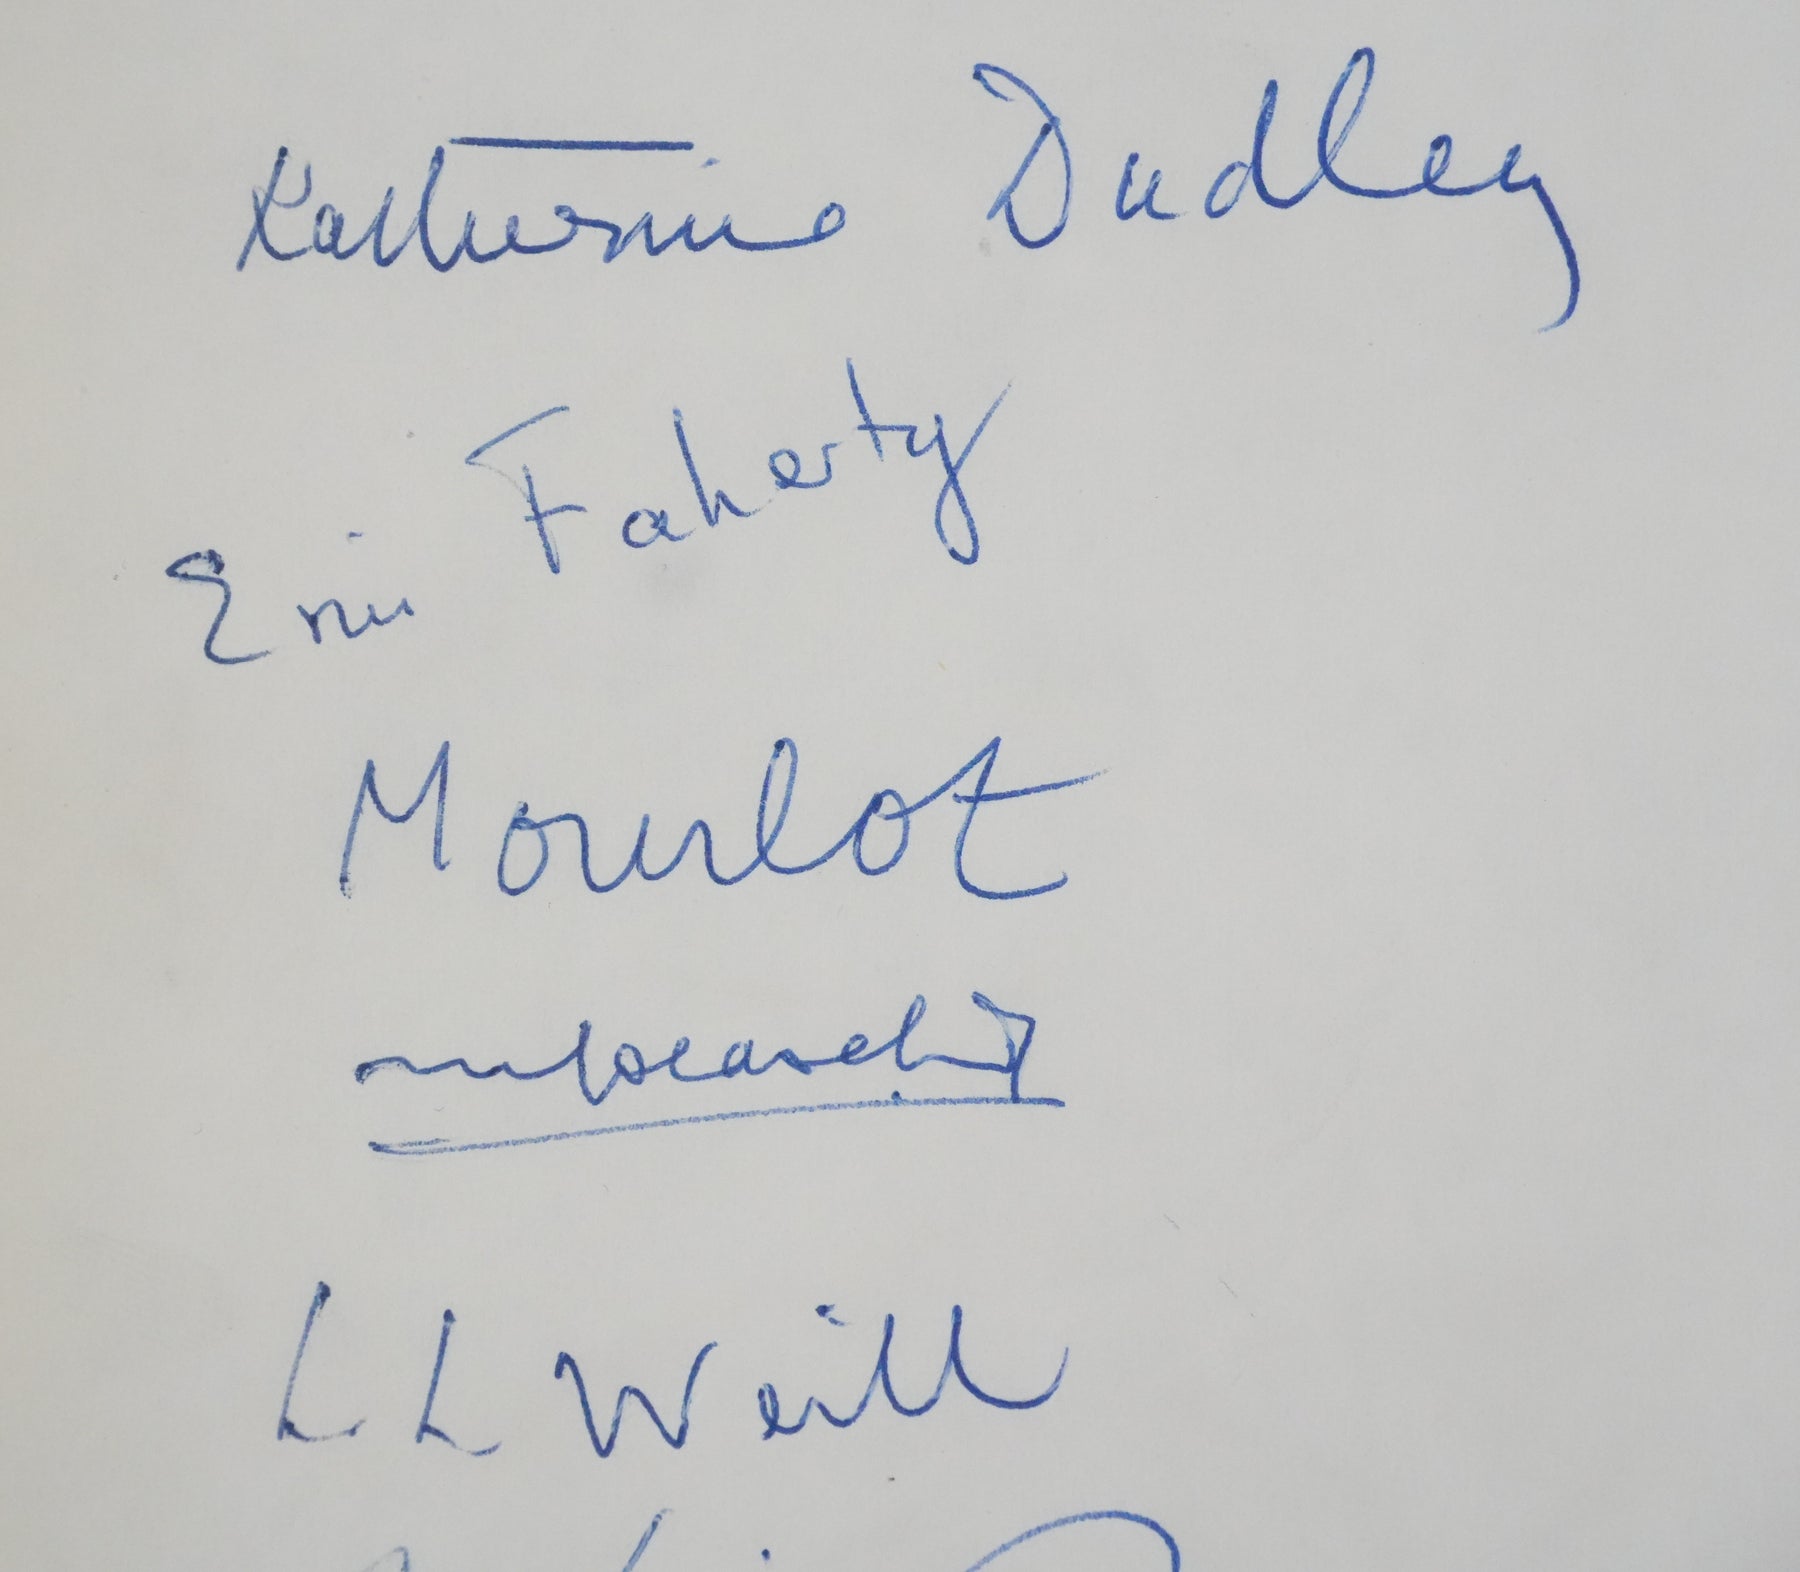 Katherine Dudley
Erin Faherty
Mourlot
L L Weill